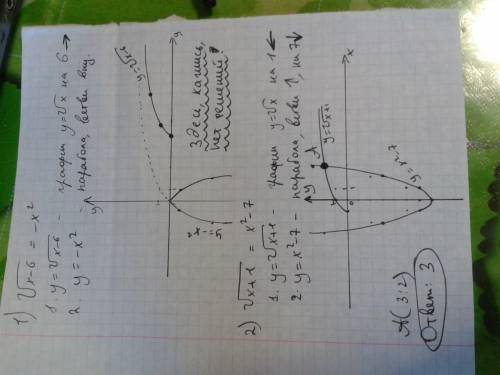 1) √x-6 = -x²
1. y=√x-6 - график y=√x на 6 →
2. y=-x² - парабола, ветви вниз.
y
y=√x-6
x
здесь, кажись,
нет решений!
2) √x+1 = x²-7
1. y=√x+1 - график y=√x на 1 ←
2. y=x²-7 - парабола, ветви ↑, на 7↓
y
A
y=√x+1
y=x²-7
x
A(3;2)
Ответ: 3